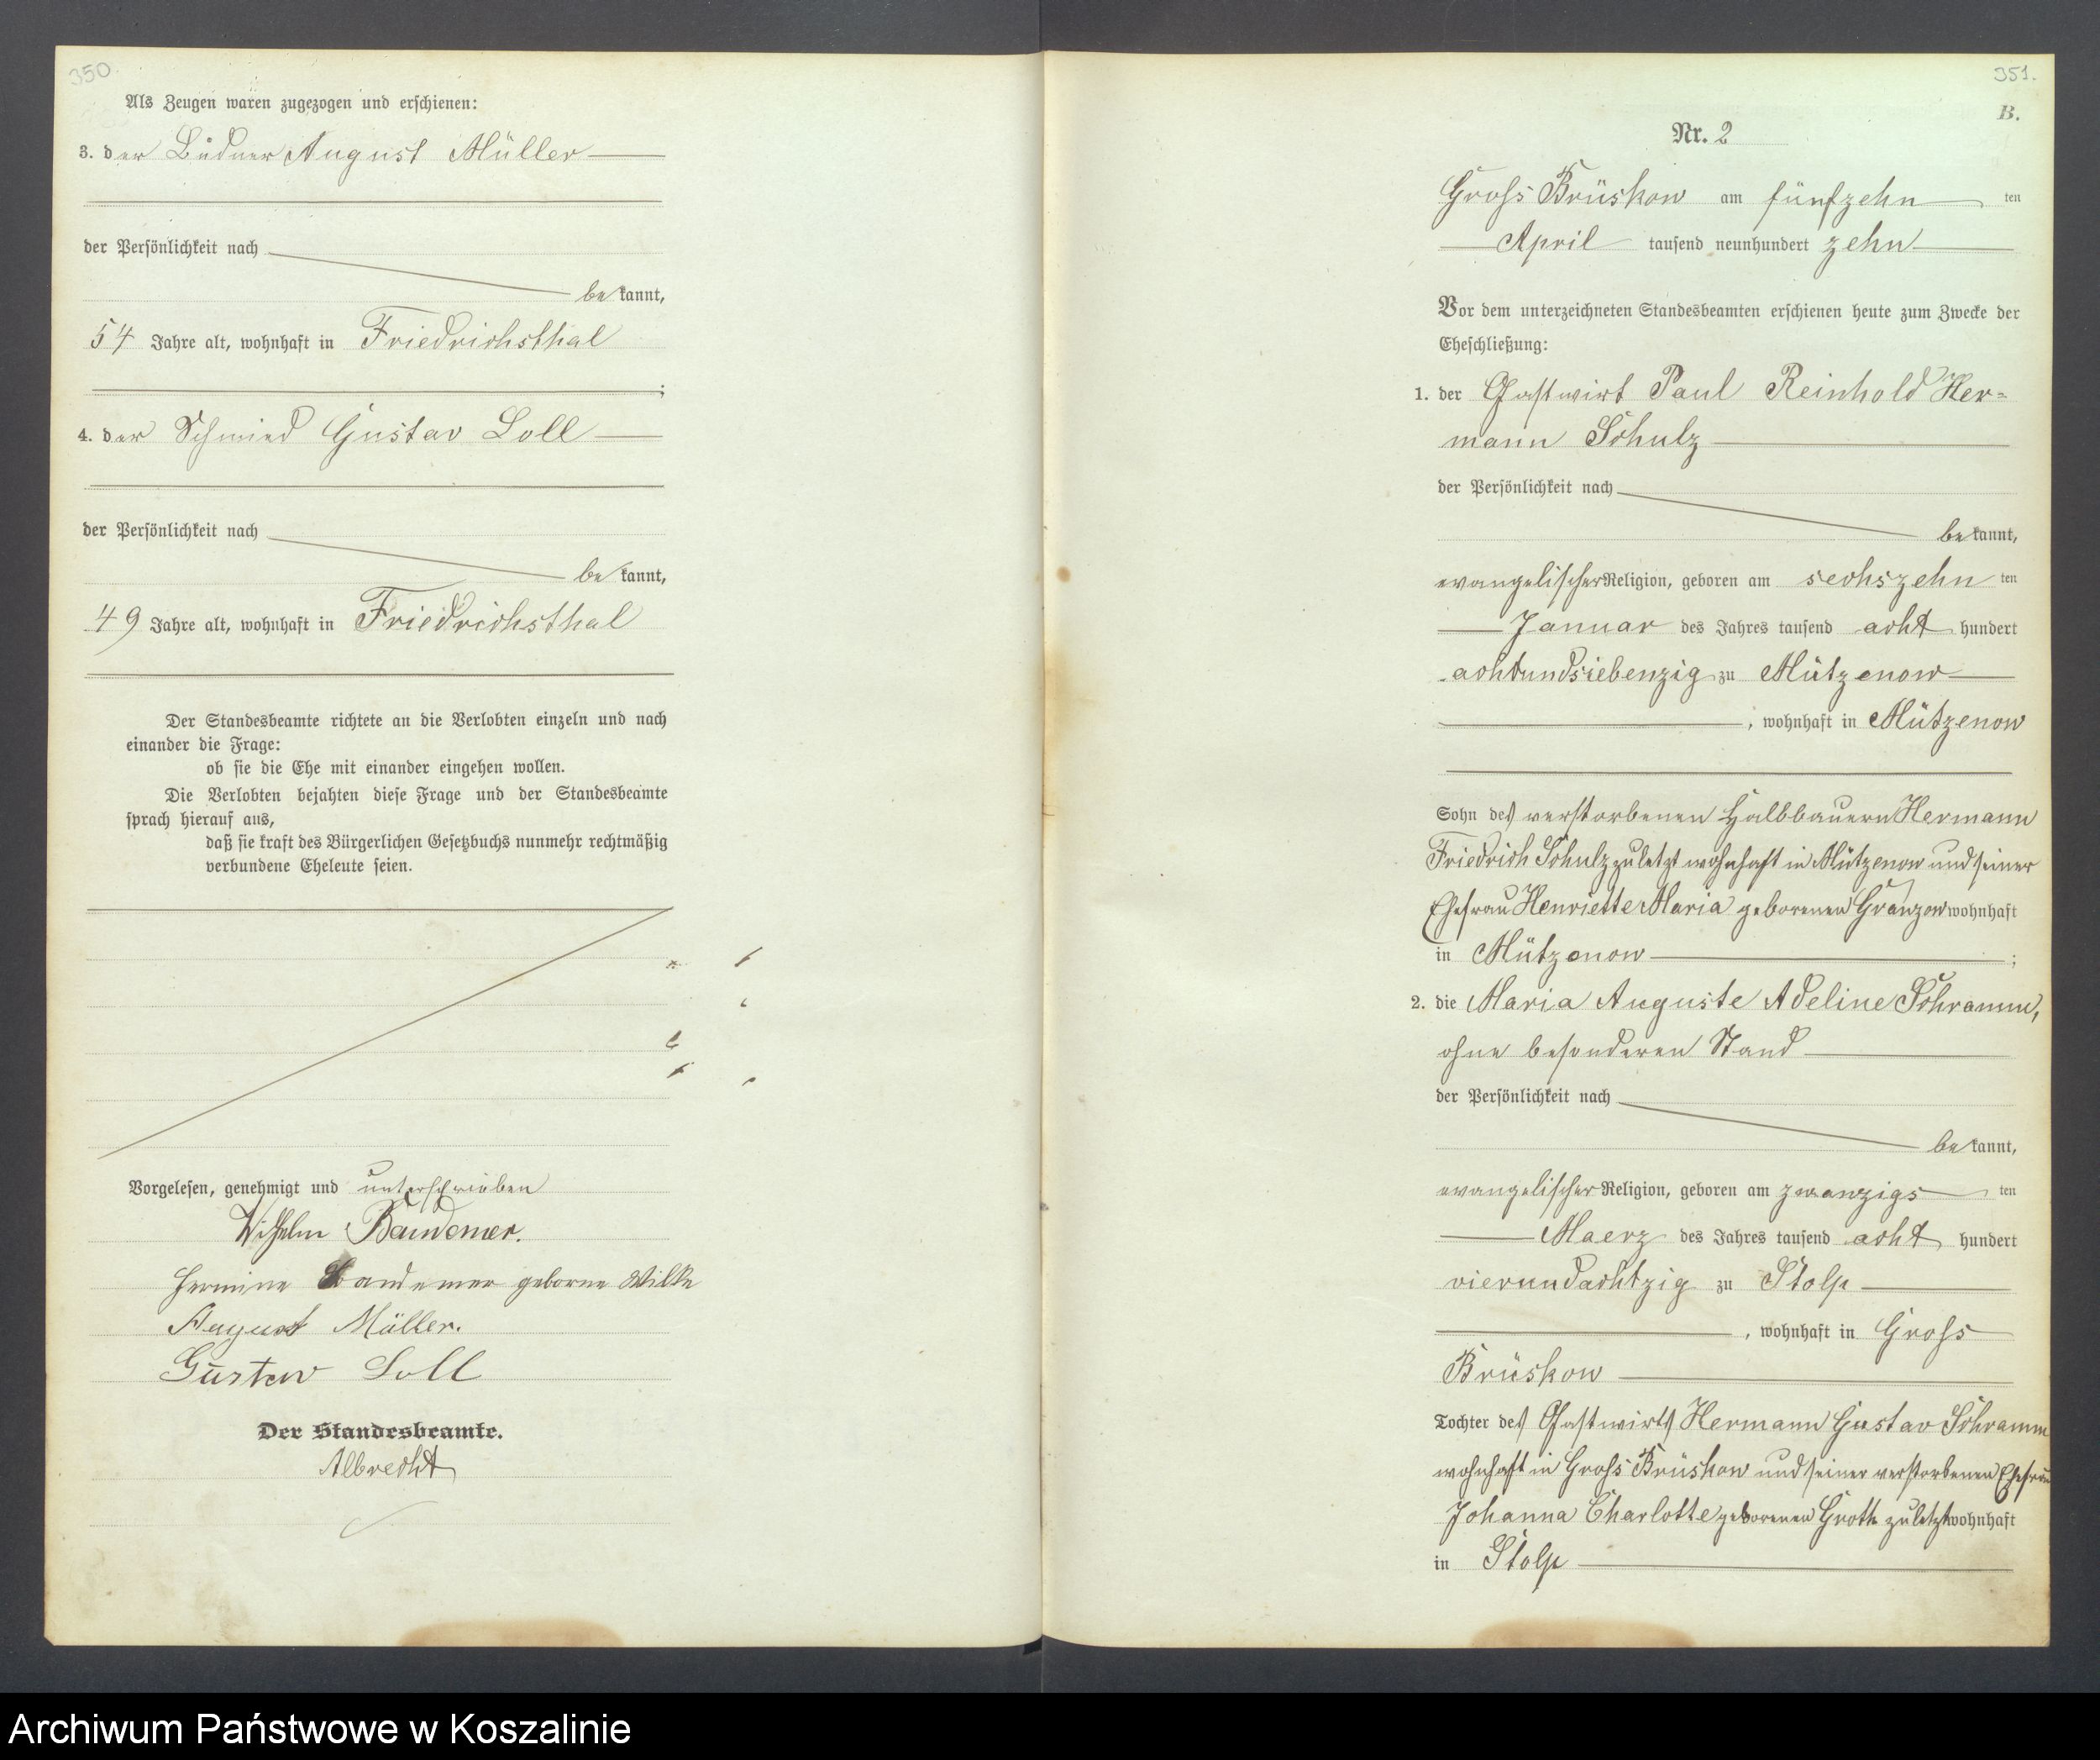 350.
Als Zeugen waren zugezogen und erschienen:
3. der Büdner August Müller
der Persönlichkeit nach
bekannt,
54 Jahre alt, wohnhaft in Friedrichsthal
;
4. der Schmied Gustav Loll
der Persönlichkeit nach
bekannt,
49 Jahre alt, wohnhaft in Friedrichsthal
Der Standesbeamte richtete an die Verlobten einzeln und nach
einander die Frage:
ob sie die Ehe mit einander eingehen wollen.
Die Verlobten bejahten diese Frage und der Standesbeamte
sprach hierauf aus,
daß sie kraft des Bürgerlichen Gesetzbuchs nunmehr rechtmäßig
verbundene Eheleute seien.
Vorgelesen, genehmigt und unterschrieben
Wilhelm Bandemer.
Hermine Bandemer geborne Wilke
August Müller.
Gustav Loll
Der Standesbeamte.
Albrecht
351.
B.
Nr. 2
Gross Brüskow am fünfzehn ten
April tausend neunhundert zehn
Vor dem unterzeichneten Standesbeamten erschienen heute zum Zwecke der
Eheschließung:
1. der Gastwirt Paul Reinhold Her=
mann Schulz
der Persönlichkeit nach
bekannt,
evangelischer Religion, geboren am sechszehn ten
Januar des Jahres tausend acht hundert
achtundsiebenzig zu Mützenow
, wohnhaft in Mützenow
Sohn des verstorbenen Halbbauern Hermann
Friedrich Schulz zuletzt wohnhaft in Mützenow und seiner
Ehefrau Henriette Maria geborenen Granzow wohnhaft
in Mützenow ;
2. die Maria Auguste Adeline Schramm,
ohne besonderen Stand
der Persönlichkeit nach
bekannt,
evangelischer Religion, geboren am zwanzigs ten
Maerz des Jahres tausend acht hundert
vierundachtzig zu Stolp
, wohnhaft in Gross
Brüskow
Tochter des Gastwirts Hermann Gustav Schramm
wohnhaft in Gross Brüskow und seiner verstorbenen Ehefrau
Johanna Charlotte geborenen Groth zuletzt wohnhaft
in Stolp
Archiwum Państwowe w Koszalinie